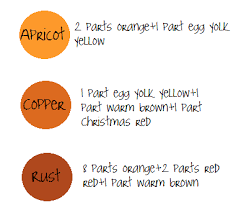 APRICOT
2 Parts orange+1 Part egg yolk
yellow
COPPER
1 Part egg yolk yellow+1
Part warm brown+1 Part
Christmas red
RUST
8 Parts orange+2 Parts red
red+1 Part warm brown